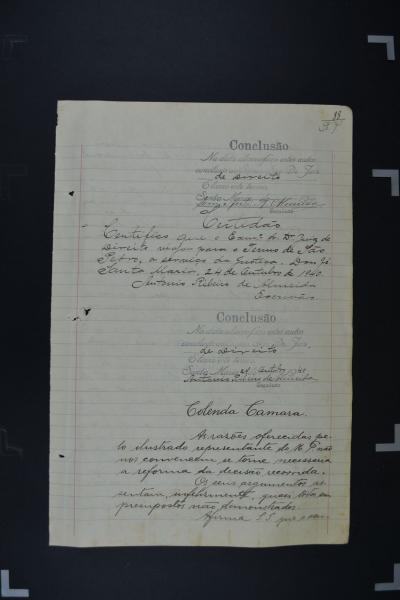 Conclusão
Na data abaixo faço estes autos
conclusos ao Dr. Juiz
de Direito
E lavro este termo.
Santa Maria
Escrivão
Certidão
Certifico que o Exmº Sr. Dr. Juiz de
Direito viajou para o Termo de São
Pedro, a serviço da Justiça. Dou fé.
Santa Maria, 24 de Outubro de 1940.
Antonio Ribeiro de Almeida
Escrivão
Conclusão
Na data abaixo faço estes autos
conclusos ao Dr. Juiz
de Direito
E lavro este termo.
Santa Maria, Outubro 1940
Antonio Ribeiro de Almeida
Escrivão
Colenda Camara.
As razões oferecidas pe-
lo ilustrado representante do M. P. não
nos convencem se torne necessaria
a reforma da decisão recorrida.
Os seus argumentos as-
sentam, infelizmente, quasi todos em
presupostos não demonstrados.
Afirma S. S. que